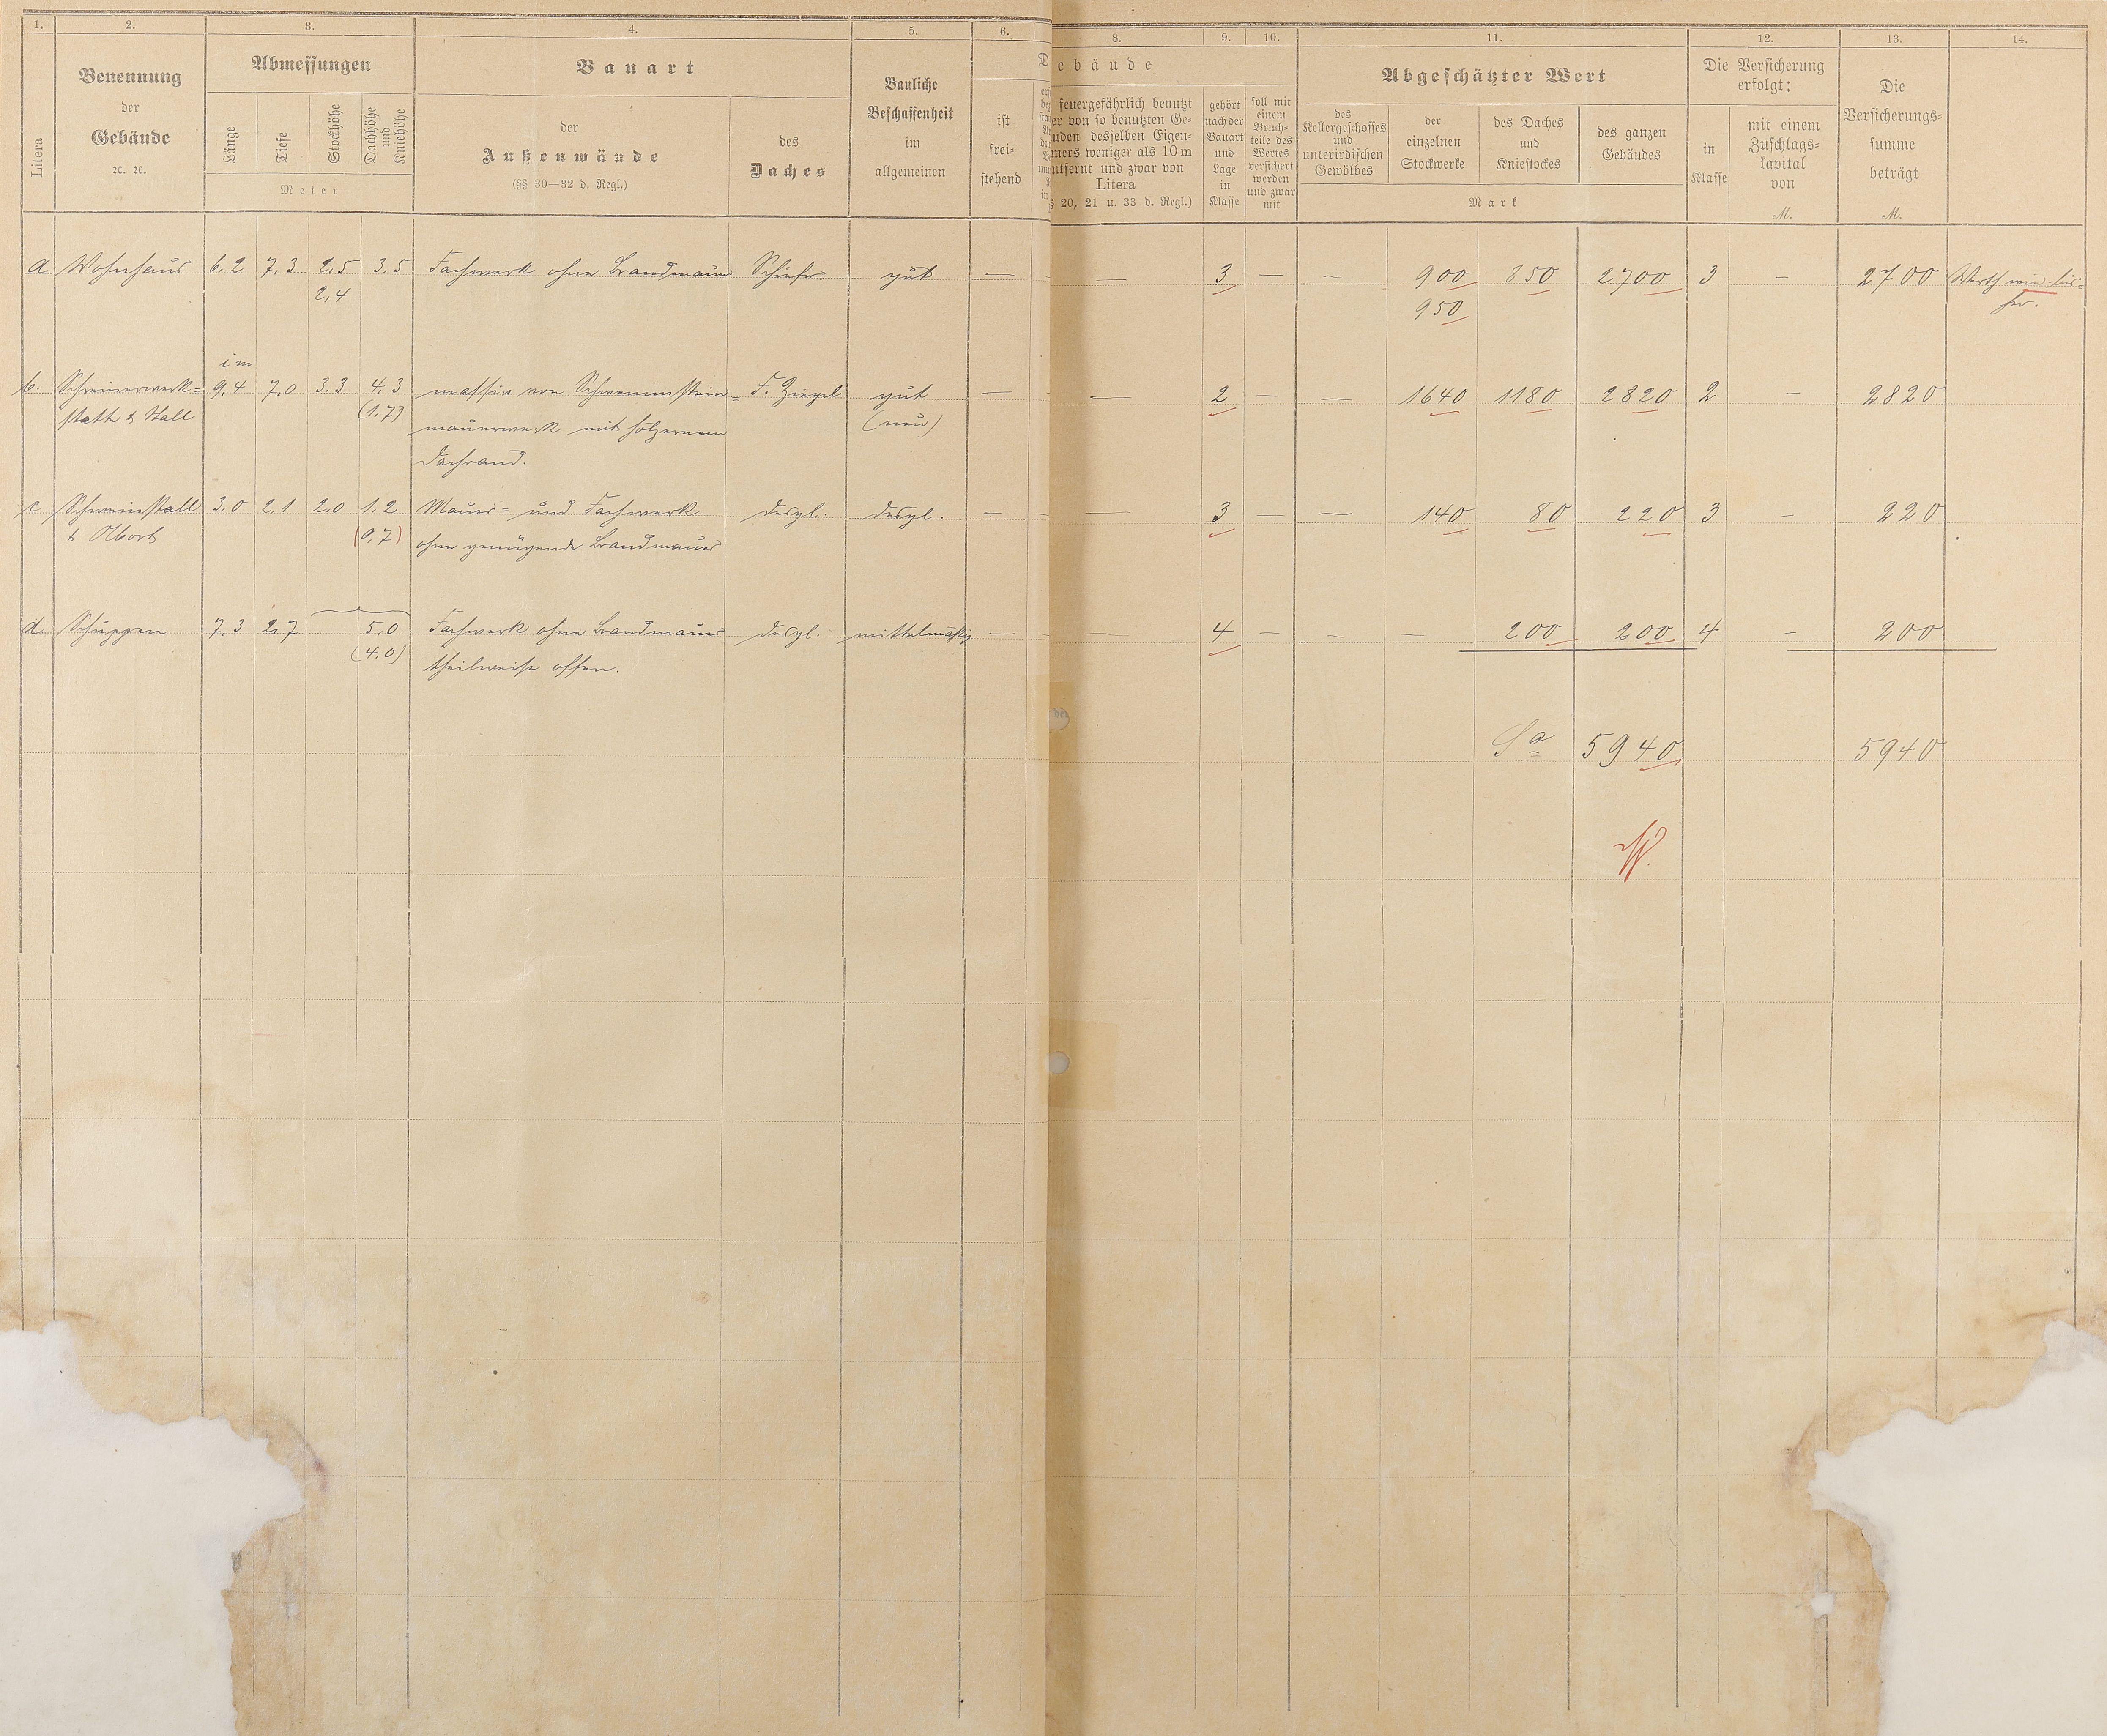 1. 2. 3. 4. 5. 6. 8. 9. 10. 11. 12. 13. 14.
Litera
Benennung
der
Gebäude
ꝛc. ꝛc.
Abmessungen
Länge
Tiefe
Stockhöhe
Dachhöhe
und
Kniehöhe
Meter
Bauart
der
Außenwände
(§§ 30—32 d. Regl.)
des
Daches
Bauliche
Beschaffenheit
im
allgemeinen
ist
frei-
stehend
ebäude
feuergefährlich benutzt
er von so benutzten Ge-
uden desselben Eigen-
mers weniger als 10 m
ntfernt und zwar von
Litera
§ 20, 21 u. 33 d. Regl.)
gehört
nach der
Bauart
und
Lage
in
Klasse
soll mit
einem
Bruch-
teile des
Wertes
versichert
werden
und zwar
mit
Abgeschätzter Wert
des
Kellergeschosses
und
unterirdischen
Gewölbes
der
einzelnen
Stockwerke
des Daches
und
Kniestockes
des ganzen
Gebäudes
Mark
Die Versicherung
erfolgt:
in
Klasse
mit einem
Zuschlags-
kapital
von
M.
Die
Versicherungs-
summe
beträgt
M.
a. Wohnhaus 6.2 7.3 2,5 3.5 Fachwerk ohne Brandmauer Schiefer. gut — — 3 — — 900 850 2700 3 — 2700 Werth wie bis-
2,4 950 her.
im
b. Schreinerwerk- 9,4 7,0 3.3 4.3 massiv von Schwemmstein- F. Ziegel gut — — 2 — — 1640 1180 2820 2 — 2820
statt & Stall (1.7) mauerwerk mit hölzernem (neu)
Dachrand.
c Schweinestall 3.0 2.1 2.0 1.2 Mauer- und Fachwerk desgl. desgl. — — 3 — — 140 80 220 3 — 220
& Abort (0,7) ohne genügende Brandmauer
d. Schuppen 7.3 2,7 5.0 Fachwerk ohne Brandmauer desgl. mittelmäßig — — 4 — — — 200 200 4 — 200
(4.0) theilweise offen.
Sa 5940 5940